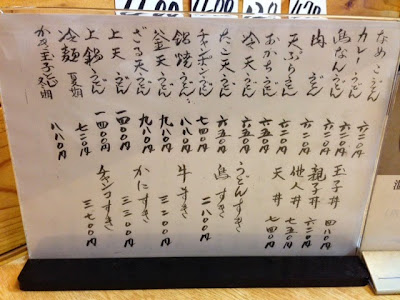 なめこうどん 六二〇円
カレーうどん 六二〇円
鳥なんうどん 六二〇円
肉うどん 六二〇円
天ぷらうどん 六二〇円
おかちんうどん 六五〇円
冷天うどん 六五〇円
たこ天うどん 六五〇円
チャンポンうどん 七四〇円
鍋焼うどん 八八〇円
釜天うどん 九八〇円
ざる天うどん 九八〇円
上天うどん 一四〇〇円
上鍋うどん 一四〇〇円
冷麺 夏期 七二〇円
八八〇円
玉子丼 四八〇円
親子丼 六二〇円
他人丼 七五〇円
天丼 七四〇円
うどんすき
鳥すき 二八〇〇円
牛すき 三二〇〇円
かにすき 三二〇〇円
チャンコすき 三七〇〇円